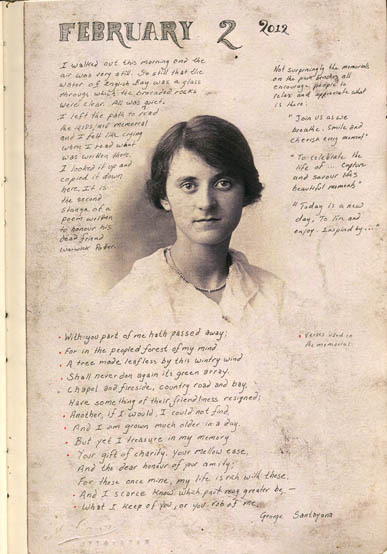 FEBRUARY 2 2012
I walked out this morning and the
air was very still. So still that the
water of English Bay was a glass
through which the brocaded rocks
were clear. All was quiet.
I left the path to read
the memorial
and I felt like crying
when I read what
was written there.
I looked it up and
copied it down
here. It is
the second
stanza of a
poem written
to honour his
dead friend
Warwick Potter.
Not surprisingly the memorials
on the park benches all
encourage people to
relax and appreciate what
is there:
"Join us as we
breathe. Smile and
cherish every moment"
"To celebrate the
life of ... Capture
and savour this
beautiful moment"
"Today is a new
day, To live and
enjoy. Inspired by..."
• verses used in
the memorial.
• With you part of me hath passed away;
• For in the peopled forest of my mind
• A tree made leafless by this wintry wind
• Shall never don again its green array.
• Chapel and fireside, country road and bay,
Have something of their friendliness resigned;
• Another, if I would, I could not find,
• And I am grown much older in a day.
• But yet I treasure in my memory
• Your gift of charity, your mellow ease,
And the dear honour of your amity;
For these once mine, my life is rich with these.
• And I scarce know which part may greater be, —
• What I keep of you, or you rob of me.
George Santayana